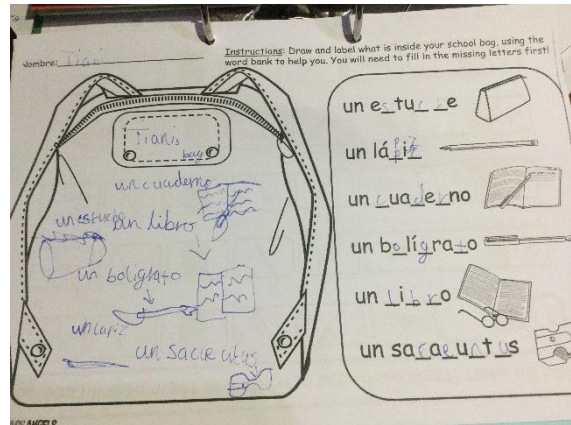 Nombre: Tian
Instructions: Draw and label what is inside your school bag, using the
word bank to help you. You will need to fill in the missing letters first!
Tian's
bag
un cuaderno
un estuche
un libro
un boligrato
un lapiz
un sacie utas
un estuche
un lápiz
un cuaderno
un bolígrato
un Libro
un sacaeuntus